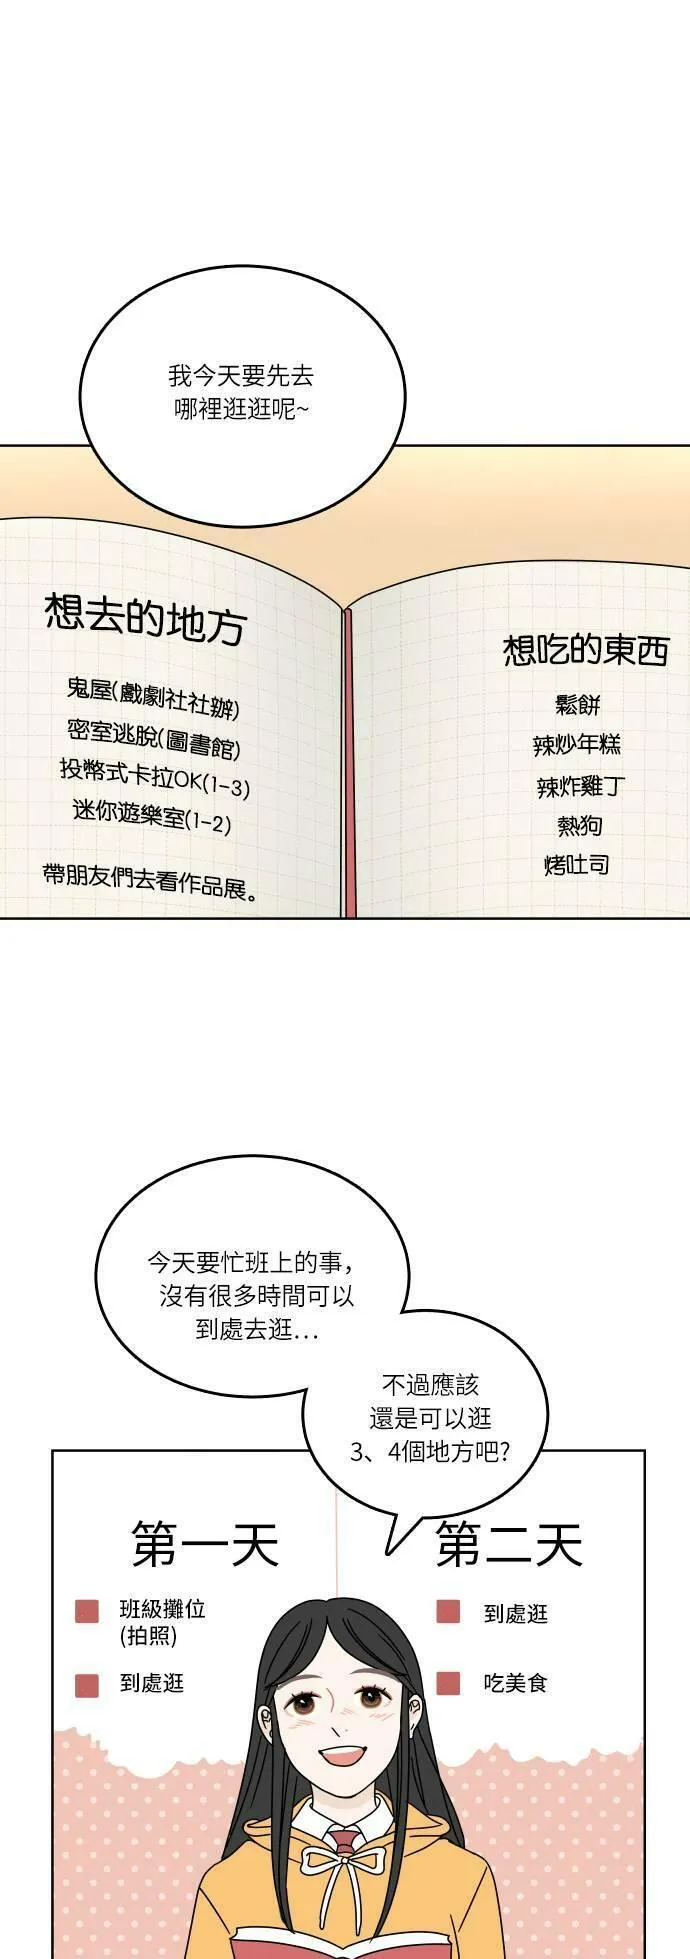 我今天要先去
哪裡逛逛呢~
想去的地方
鬼屋(戲劇社社辦)
密室逃脫(圖書館)
投幣式卡拉OK(1-3)
迷你遊樂室(1-2)
帶朋友們去看作品展。
想吃的東西
鬆餅
辣炒年糕
辣炸雞丁
熱狗
烤吐司
今天要忙班上的事,
沒有很多時間可以
到處去逛...
不過應該
還是可以逛
3、4個地方吧?
第一天
班級攤位
(拍照)
到處逛
第二天
到處逛
吃美食